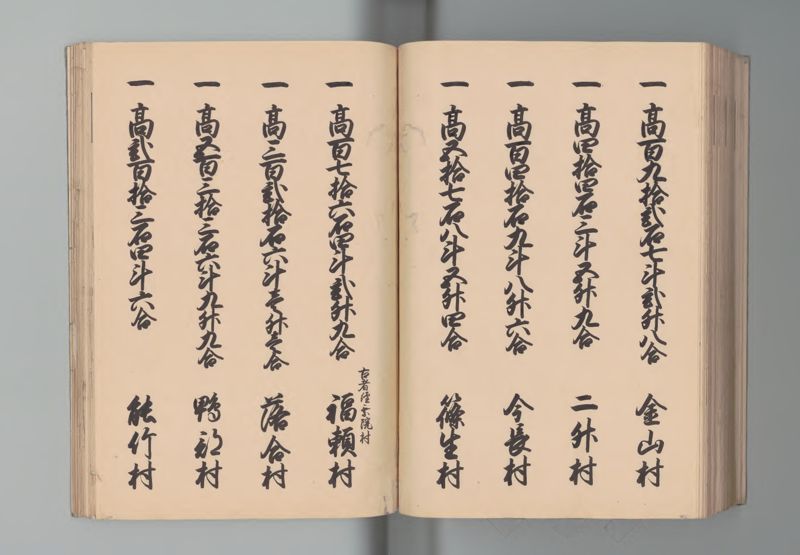 一 高百九拾弐石七斗弐升八合 金山村
一 高四拾四石三斗五升九合 二升村
一 高百四拾石九斗八升六合 今長村
一 高五拾七石八斗五升四合 篠生村
一 高百七拾六石四斗弐升九合 福頼村
古者 院村
一 高三百弐拾石六斗壱升壱合 落合村
一 高五百三拾三石六斗九升九合 鴨部村
一 高弐百拾三石四斗六合 能竹村